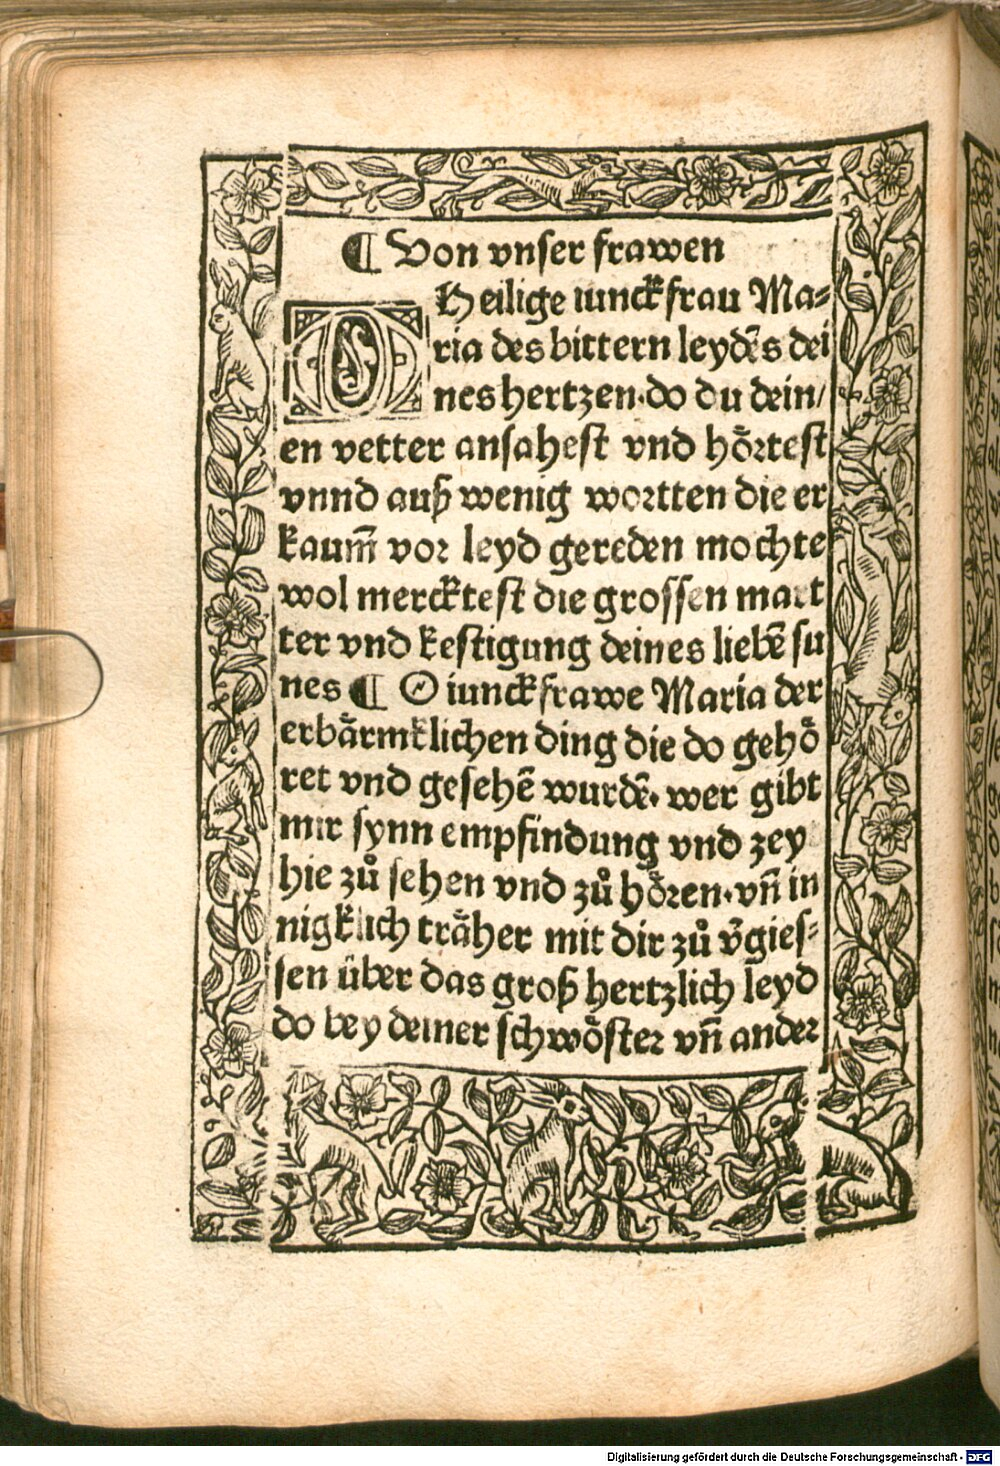 ¶ Von vnser frawen
O Heilige iunckfrau Ma⸗
ria des bittern leydẽs dei
nes hertzen·do du dein/
en vetter ansahest vnd hoͤrtest
vnnd auß wenig wortten die er
kaum̃ vor leyd gereden mochte
wol mercktest die grossen mart
ter vnd kestigung deines liebẽ su
nes ¶ O iunckfrawe Maria der
erbaͤrmklichen ding die do gehoͤ
ret vnd gesehẽ wurdẽ· wer gibt
mir synn empfindung vnd zey
hie zuͦ sehen vnd zuͦ hoͤren·vñ in
nigklich traͤher mit dir zuͦ ṽgies⸗
sen uͤber das groß hertzlich leyd
do bey deiner schwoͤster vñ ander
Digitalisierung gefördert durch die Deutsche Forschungsgemeinschaft - DFG